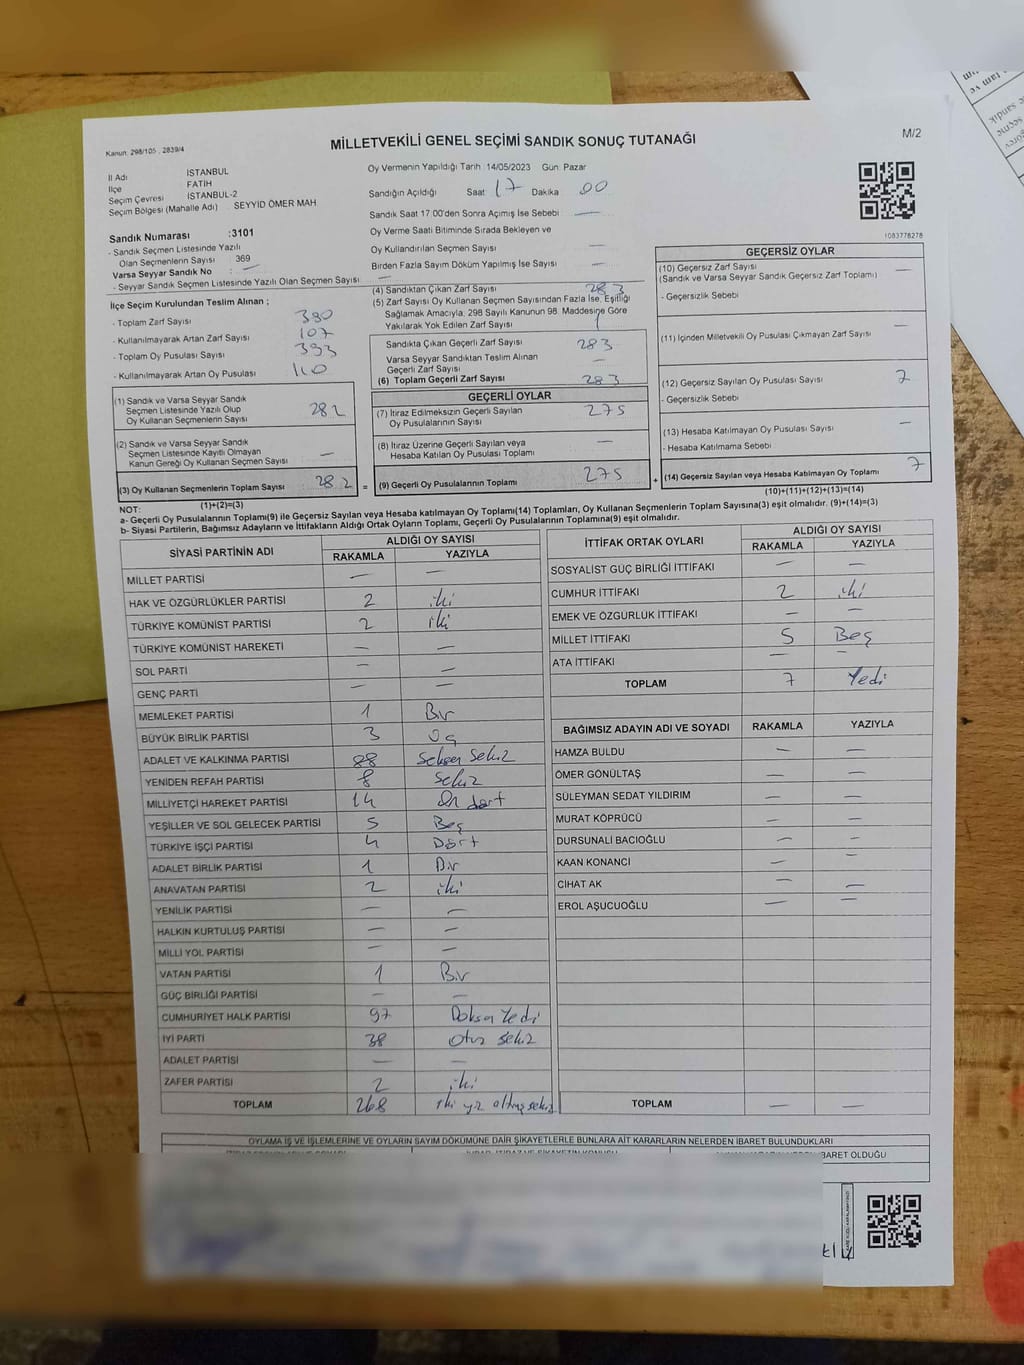 Kanun: 298/105 , 2839/4
MİLLETVEKİLİ GENEL SEÇİMİ SANDIK SONUÇ TUTANAĞI
M/2
İl Adı İSTANBUL
İlçe FATİH
Seçim Çevresi İSTANBUL-2
Seçim Bölgesi (Mahalle Adı) SEYYİD ÖMER MAH.
Oy Vermenin Yapıldığı Tarih :14/05/2023 Gün: Pazar
Sandığın Açıldığı Saat 17 Dakika 00
Sandık Saat 17:00'den Sonra Açımış İse Sebebi —
Oy Verme Saati Bitiminde Sırada Bekleyen ve
Oy Kullandırılan Seçmen Sayısı —
Birden Fazla Sayım Döküm Yapılmış İse Sayısı —
1083778278
Sandık Numarası :3101
- Sandık Seçmen Listesinde Yazılı
Olan Seçmenlerin Sayısı : 369
Varsa Seyyar Sandık No : —
- Seyyar Sandık Seçmen Listesinde Yazılı Olan Seçmen Sayısı : —
İlçe Seçim Kurulundan Teslim Alınan ;
- Toplam Zarf Sayısı 390
- Kullanılmayarak Artan Zarf Sayısı 107
- Toplam Oy Pusulası Sayısı 393
- Kullanılmayarak Artan Oy Pusulası 110
(1) Sandık ve Varsa Seyyar Sandık
Seçmen Listesinde Yazılı Olup
Oy Kullanan Seçmenlerin Sayısı 282
(2) Sandık ve Varsa Seyyar Sandık
Seçmen Listesinde Kayıtlı Olmayan
Kanun Gereği Oy Kullanan Seçmen Sayısı —
(3) Oy Kullanan Seçmenlerin Toplam Sayısı 282
(1)+(2)=(3)
(4) Sandıktan Çıkan Zarf Sayısı 283
(5) Zarf Sayısı Oy Kullanan Seçmen Sayısından Fazla İse, Eşitliği
Sağlamak Amacıyla, 298 Sayılı Kanunun 98. Maddesine Göre
Yakılarak Yok Edilen Zarf Sayısı 1
Sandıkta Çıkan Geçerli Zarf Sayısı 283
Varsa Seyyar Sandıktan Teslim Alınan
Geçerli Zarf Sayısı —
(6) Toplam Geçerli Zarf Sayısı 283
GEÇERLİ OYLAR
(7) İtiraz Edilmeksizin Geçerli Sayılan
Oy Pusulalarının Sayısı 275
(8) İtiraz Üzerine Geçerli Sayılan veya
Hesaba Katılan Oy Pusulası Toplamı —
= (9) Geçerli Oy Pusulalarının Toplamı 275
GEÇERSİZ OYLAR
(10) Geçersiz Zarf Sayısı —
(Sandık ve Varsa Seyyar Sandık Geçersiz Zarf Toplamı)
- Geçersizlik Sebebi
(11) İçinden Milletvekili Oy Pusulası Çıkmayan Zarf Sayısı —
(12) Geçersiz Sayılan Oy Pusulası Sayısı 7
- Geçersizlik Sebebi
(13) Hesaba Katılmayan Oy Pusulası Sayısı —
- Hesaba Katılmama Sebebi
+ (14) Geçersiz Sayılan veya Hesaba Katılmayan Oy Toplamı 7
(10)+(11)+(12)+(13)=(14)
NOT:
a- Geçerli Oy Pusulalarının Toplamı(9) ile Geçersiz Sayılan veya Hesaba katılmayan Oy Toplamı(14) Toplamları, Oy Kullanan Seçmenlerin Toplam Sayısına(3) eşit olmalıdır. (9)+(14)=(3)
b- Siyasi Partilerin, Bağımsız Adayların ve İttifakların Aldığı Ortak Oyların Toplamı, Geçerli Oy Pusulalarının Toplamına(9) eşit olmalıdır.
SİYASİ PARTİNİN ADI ALDIĞI OY SAYISI
RAKAMLA YAZIYLA
MİLLET PARTİSİ — —
HAK VE ÖZGÜRLÜKLER PARTİSİ 2 iki
TÜRKİYE KOMÜNİST PARTİSİ 2 iki
TÜRKİYE KOMÜNİST HAREKETİ — —
SOL PARTİ — —
GENÇ PARTİ — —
MEMLEKET PARTİSİ 1 Bir
BÜYÜK BİRLİK PARTİSİ 3 Üç
ADALET VE KALKINMA PARTİSİ 88 Seksen Sekiz
YENİDEN REFAH PARTİSİ 8 Sekiz
MİLLİYETÇİ HAREKET PARTİSİ 14 On dört
YEŞİLLER VE SOL GELECEK PARTİSİ 5 Beş
TÜRKİYE İŞÇİ PARTİSİ 4 Dört
ADALET BİRLİK PARTİSİ 1 Bir
ANAVATAN PARTİSİ 2 iki
YENİLİK PARTİSİ — —
HALKIN KURTULUŞ PARTİSİ — —
MİLLİ YOL PARTİSİ — —
VATAN PARTİSİ 1 Bir
GÜÇ BİRLİĞİ PARTİSİ — —
CUMHURİYET HALK PARTİSİ 97 Doksan Yedi
İYİ PARTİ 38 Otuz Sekiz
ADALET PARTİSİ — —
ZAFER PARTİSİ 2 iki
TOPLAM 268 iki yüz altmış sekiz
İTTİFAK ORTAK OYLARI ALDIĞI OY SAYISI
RAKAMLA YAZIYLA
SOSYALİST GÜÇ BİRLİĞİ İTTİFAKI — —
CUMHUR İTTİFAKI 2 iki
EMEK VE ÖZGÜRLÜK İTTİFAKI — —
MİLLET İTTİFAKI 5 Beş
ATA İTTİFAKI — —
TOPLAM 7 Yedi
BAĞIMSIZ ADAYIN ADI VE SOYADI RAKAMLA YAZIYLA
HAMZA BULDU — —
ÖMER GÖNÜLTAŞ — —
SÜLEYMAN SEDAT YILDIRIM — —
MURAT KÖPRÜCÜ — —
DURSUNALİ BACIOĞLU — —
KAAN KONANCİ — —
CİHAT AK — —
EROL AŞUCUOĞLU — —
TOPLAM — —
OYLAMA İŞ VE İŞLEMLERİNE VE OYLARIN SAYIM DÖKÜMÜNE DAİR ŞİKAYETLERLE BUNLARA AİT KARARLARIN NELERDEN İBARET BULUNDUKLARI
BARET OLDUĞU